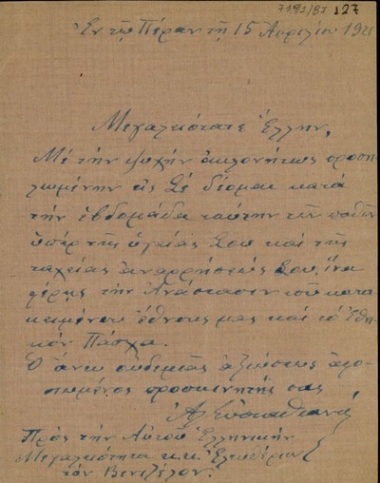 7191/81 127
Ἐν τῷ Πέραν τῇ 15 Ἀπριλίου 192
Μεγαλειότατε Ἕλλην,
Μὲ τὴν ψυχὴν ἀκλονήτως προση-
λωμένην εἰς Σὲ δέομαι κατὰ
τὴν ἑβδομάδα ταύτην τῶν παθῶν
ὑπὲρ τῆς ὑγείας Σου καὶ τῆς
ταχείας ἀναρρήσεώς Σου, ἵνα
φέρῃς τὴν Ἀνάστασιν τοῦ κατα-
κειμένου ἔθνους μας καὶ τὸ Ἐθνι-
κόν Πάσχα.
Ὁ ἄνευ οὐδεμιᾶς ἀξιώσεως ἀφο-
σιωμένος προσκυνητής σας
Πρὸς τὴν Αὐτοῦ Ἑλληνικὴν
Μεγαλειότητα κ.κ. Ἐλευθέριον
τὸν Βενιζέλον.